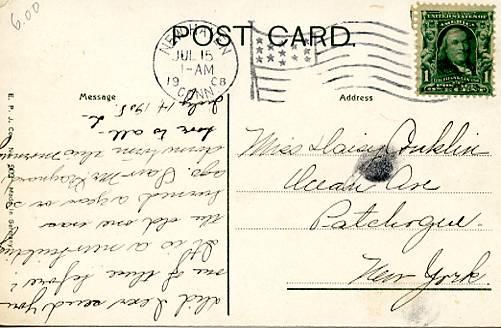 6.00
POST CARD.
NEW HAVEN
JUL 15
1-AM
1908
CONN.
UNITED STATES OF AMERICA
1 1
Message
Address
July 14 1908.
Did I ever send you
one of these before?
It is a new building
the old one was
burned a year or so
ago. Saw Mr
down town this morning
love to all. L
Miss Daisy Conklin
Ocean Ave
Patchogue
New York.
E. P. J. Co.
Made in Germany